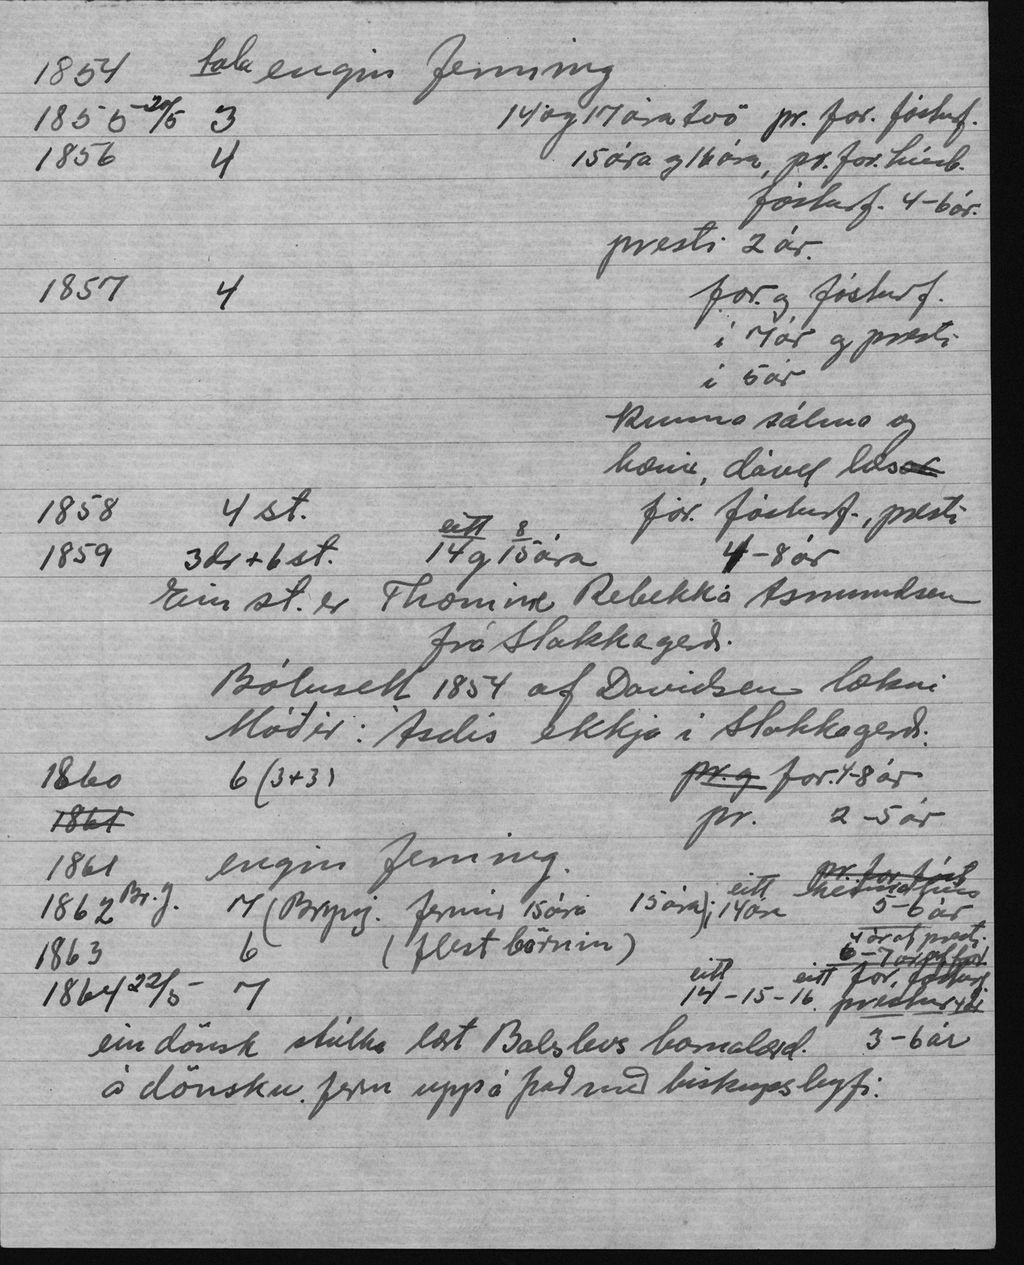 1854 tala engin ferming
1855 20/5 3 14 og 17 ára tvö pr. for. fósturf.
1856 4 15 ára og 16 ára, pr. for. húsb.
fósturf. 4-6 ár.
presti 2 ár.
1857 4 for. og fósturf.
í 7 ár og presti
í 5 ár
kunna sálma og
bænir, dável læs
1858 4 st. for. fósturf., presti
eitt 8
1859 3 dr + 6 st. 14 og 15 ára 4-8 ár
Ein st. er Thomine Rebekka Asmundsen
frá Stakkagerði.
Bólusett 1854 af Davidsen lækni
Móðir: Ásdís ekkja í Stakkagerði.
1860 6 (3+3) pr. og for. 4-8 ár
1861 pr. 2-5 ár
1861 engin ferming.
pr. for. fóst
1862 Br. J. 7 (Brynj. fermir 15 ára 15 ára); eitt 14 ára 5-6 ár
1863 6 (flest börnin) 4 ár af presti
6-7 ár
1864 22/5 7 eitt 14-15-16 eitt for. fósturf
prestur
ein dönsk stúlka lært Balslevs barnalærd. 3-6 ár
á dönsku. ferm upp á það með biskupsleyfi.